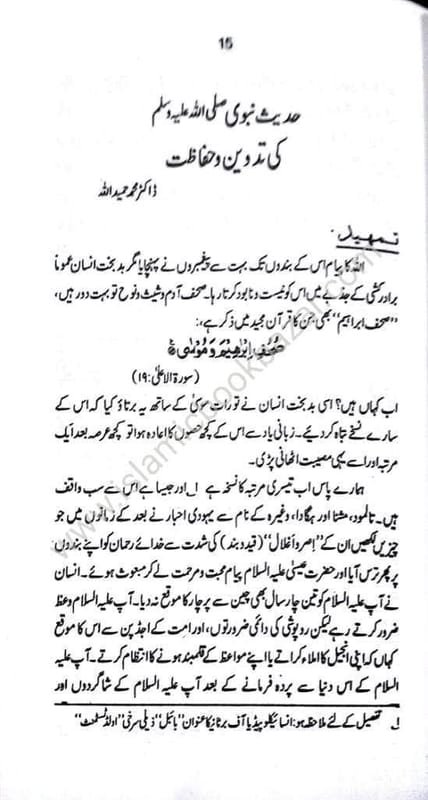 15
حدیث نبوی صلی اللہ علیہ وسلم
کی تدوین و حفاظت
ڈاکٹر محمد حمید اللہ
تمهيد:
اللہ کا پیام اس کے بندوں تک بہت سے پیغمبروں نے پہنچایا مگر بد بخت انسان عموماً
برادر کشی کے جذبے میں اس کو نیست و نابود کرتا رہا۔ صحف آدم و شیث و نوح تو بہت دور ہیں،
"صحف ابراہیم" بھی جن کا قرآن مجید میں ذکر ہے،:
صُحُفِ اِبْرٰهِيْمَ وَمُوْسٰى
(سورۃ الاعلیٰ:۱۹)
اب کہاں ہیں؟ اسی بد بخت انسان نے تورات موسیٰ کے ساتھ یہ برتاؤ کیا کہ اس کے
سارے نسخے تباہ کر دیئے۔ زبانی یاد سے اس کے کچھ حصوں کا اعادہ ہوا تو کچھ عرصہ بعد ایک
مرتبہ اور اسے یہی مصیبت اٹھانی پڑی۔
ہمارے پاس اب تیسری مرتبہ کا نسخہ ہے ۱؎ اور جیسا ہے اس سے سب واقف
ہیں۔ تالمود، مشنا اور ہگادا، وغیرہ کے نام سے یہودی احبار نے بعد کے زمانوں میں جو
چیزیں لکھیں ان کے "اصر و اغلال" (قید و بند) کی شدت سے خدائے رحمان کو اپنے بندوں
پر پھر ترس آیا اور حضرت عیسیٰ علیہ السلام پیام محبت و مرحمت لے کر مبعوث ہوئے۔ انسان
نے آپ علیہ السلام کو تین چار سال بھی چین سے پرچار کا موقع نہ دیا۔ آپ علیہ السلام وعظ
ضرور کرتے رہے لیکن روپوشی کی دائمی ضرورتوں، اور امت کے اجڈپن سے اس کا موقع
کہاں کہ اپنی انجیل کا املاء کراتے یا اپنے مواعظ کے قلمبند ہونے کا انتظام کرتے۔ آپ علیہ
السلام کے اس دنیا سے پردہ فرمانے کے بعد آپ علیہ السلام کے شاگردوں اور
۱؎ تفصیل کے لئے ملاحظہ ہو: انسائیکلو پیڈیا آف برٹانیکا عنوان "بائبل" ذیلی سرخی "اولڈ ٹسٹمنٹ"
www.islamicbookbazaar.com